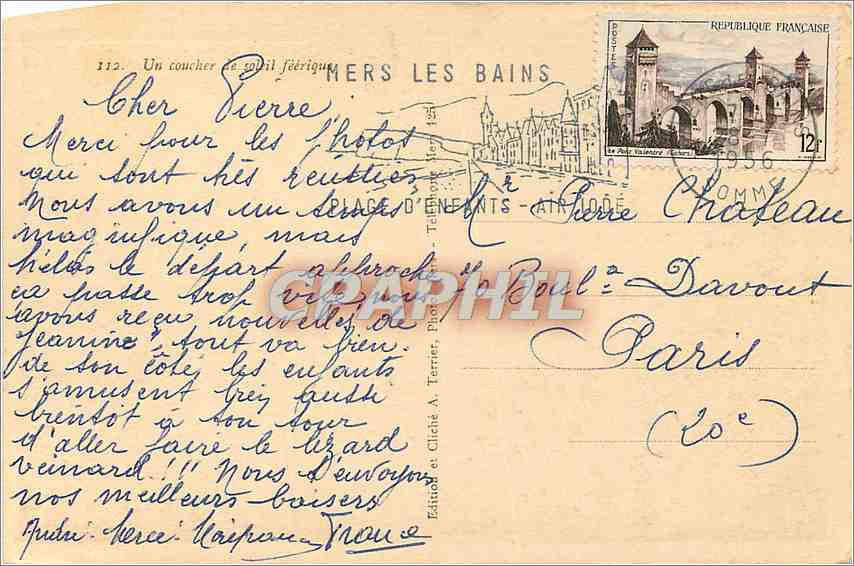 112. Un coucher de soleil féérique
MERS LES BAINS
PLAGE D'ENFANTS - AIR IODÉ
REPUBLIQUE FRANÇAISE
POSTES
Le Pont Valentré (Cahors)
12f
1956
SOMME
Cher Pierre
Merci pour les photos
qui sont très réussies
Nous avons un temps
magnifique, mais
hélas le départ approche
ça passe trop vite, nous
avons reçu nouvelles de
"Jeanine", tout va bien
de son côté, les enfants
s'amusent bien, aussi
bientôt à ton tour
d'aller faire le lézard
veinard!!! Nous t'envoyons
nos meilleurs baisers
André
France
Edition et Cliché A. Terrier, Phot
Téléphone Mers 125
Mr Pierre Chateau
70 Boul.d Davout
Paris
(20e)
CRAPHIL